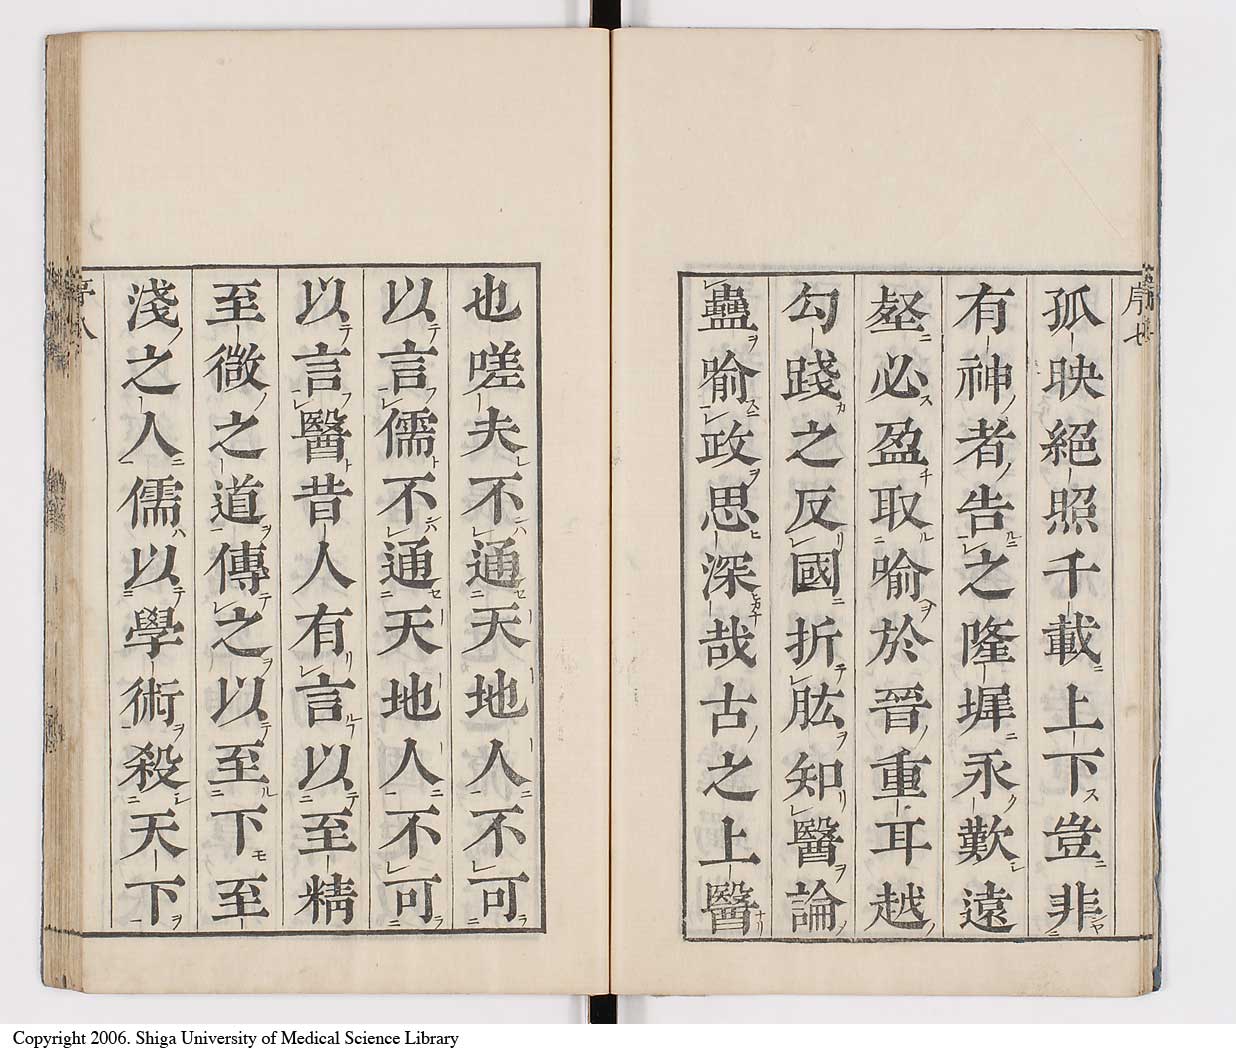 序七
孤映絕照千載上下豈非
有神者告之隆墀永歎遠
壑必盈取喻於晉重耳越
勾踐之反國折肱知醫論
蠱喻政思深哉古之上醫
也嗟夫不通天地人不可
以言儒不通天地人不可
以言醫昔人有言以至精
至微之道傳之以至下至
淺之人儒以學術殺天下
Copyright 2006. Shiga University of Medical Science Library